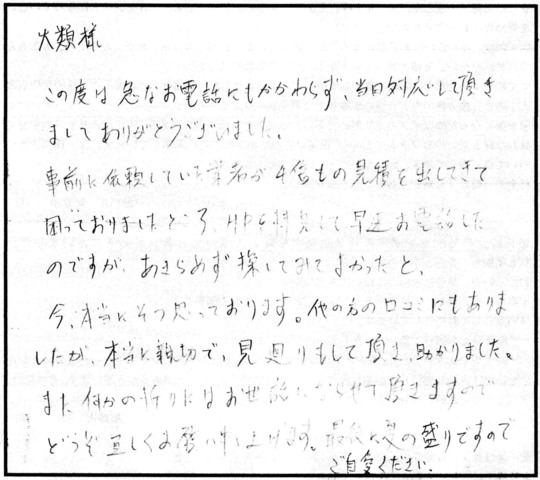 大類様
この度は急なお電話にもかかわらず、当日対応して頂き
ましてありがとうございました。
事前に依頼していた業者が4倍もの見積を出してきて
困っておりましたところ、HPを拝見して早速お電話した
のですが、あきらめず探してみてよかったと、
今、本当にそう思っております。他の方の口コミにもありま
したが、本当に親切で、見廻りもして頂き、助かりました。
また何かの折りにはお世話にならせて頂きますので
どうぞ宜しくお願い申し上げます。最後に夏の盛りですので
ご自愛ください。